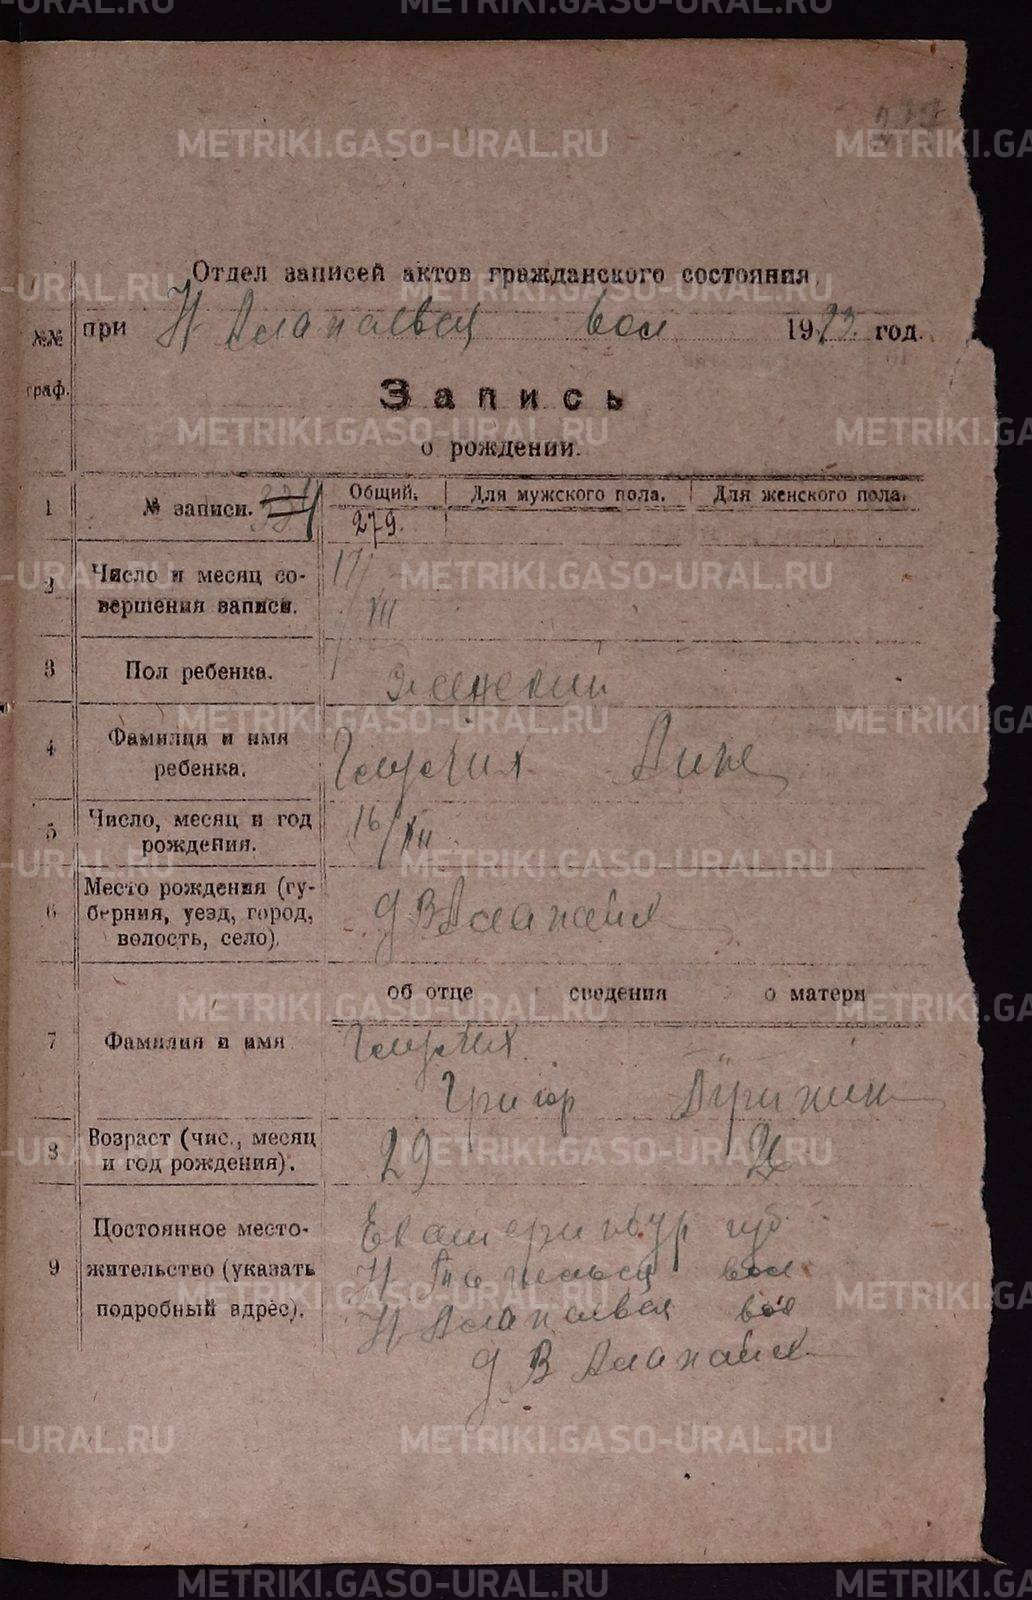 Отдел записей актов гражданского состояния
№№ граф.
при Н Алапаевск вол 1923 год.
Запись
о рождении.
1 № записи. Общий. Для мужского пола. Для женского пола.
279.
2 Число и месяц со-
вершения записи. 17/XII
3 Пол ребенка. Женский
4 Фамилия и имя
ребенка.
5 Число, месяц и год
рождения. 16/XII
6 Место рождения (гу-
берния, уезд, город,
волость, село). д. В Алапаих
об отце сведения о матери
7 Фамилия и имя
Григор
8 Возраст (чис., месяц
и год рождения). 29
9 Постоянное место-
жительство (указать
подробный адрес).
Екатеринбур губ.
Н Тагильск
Н Алапаевск вол
д В Алапаих
METRIKI.GASO-URAL.RU